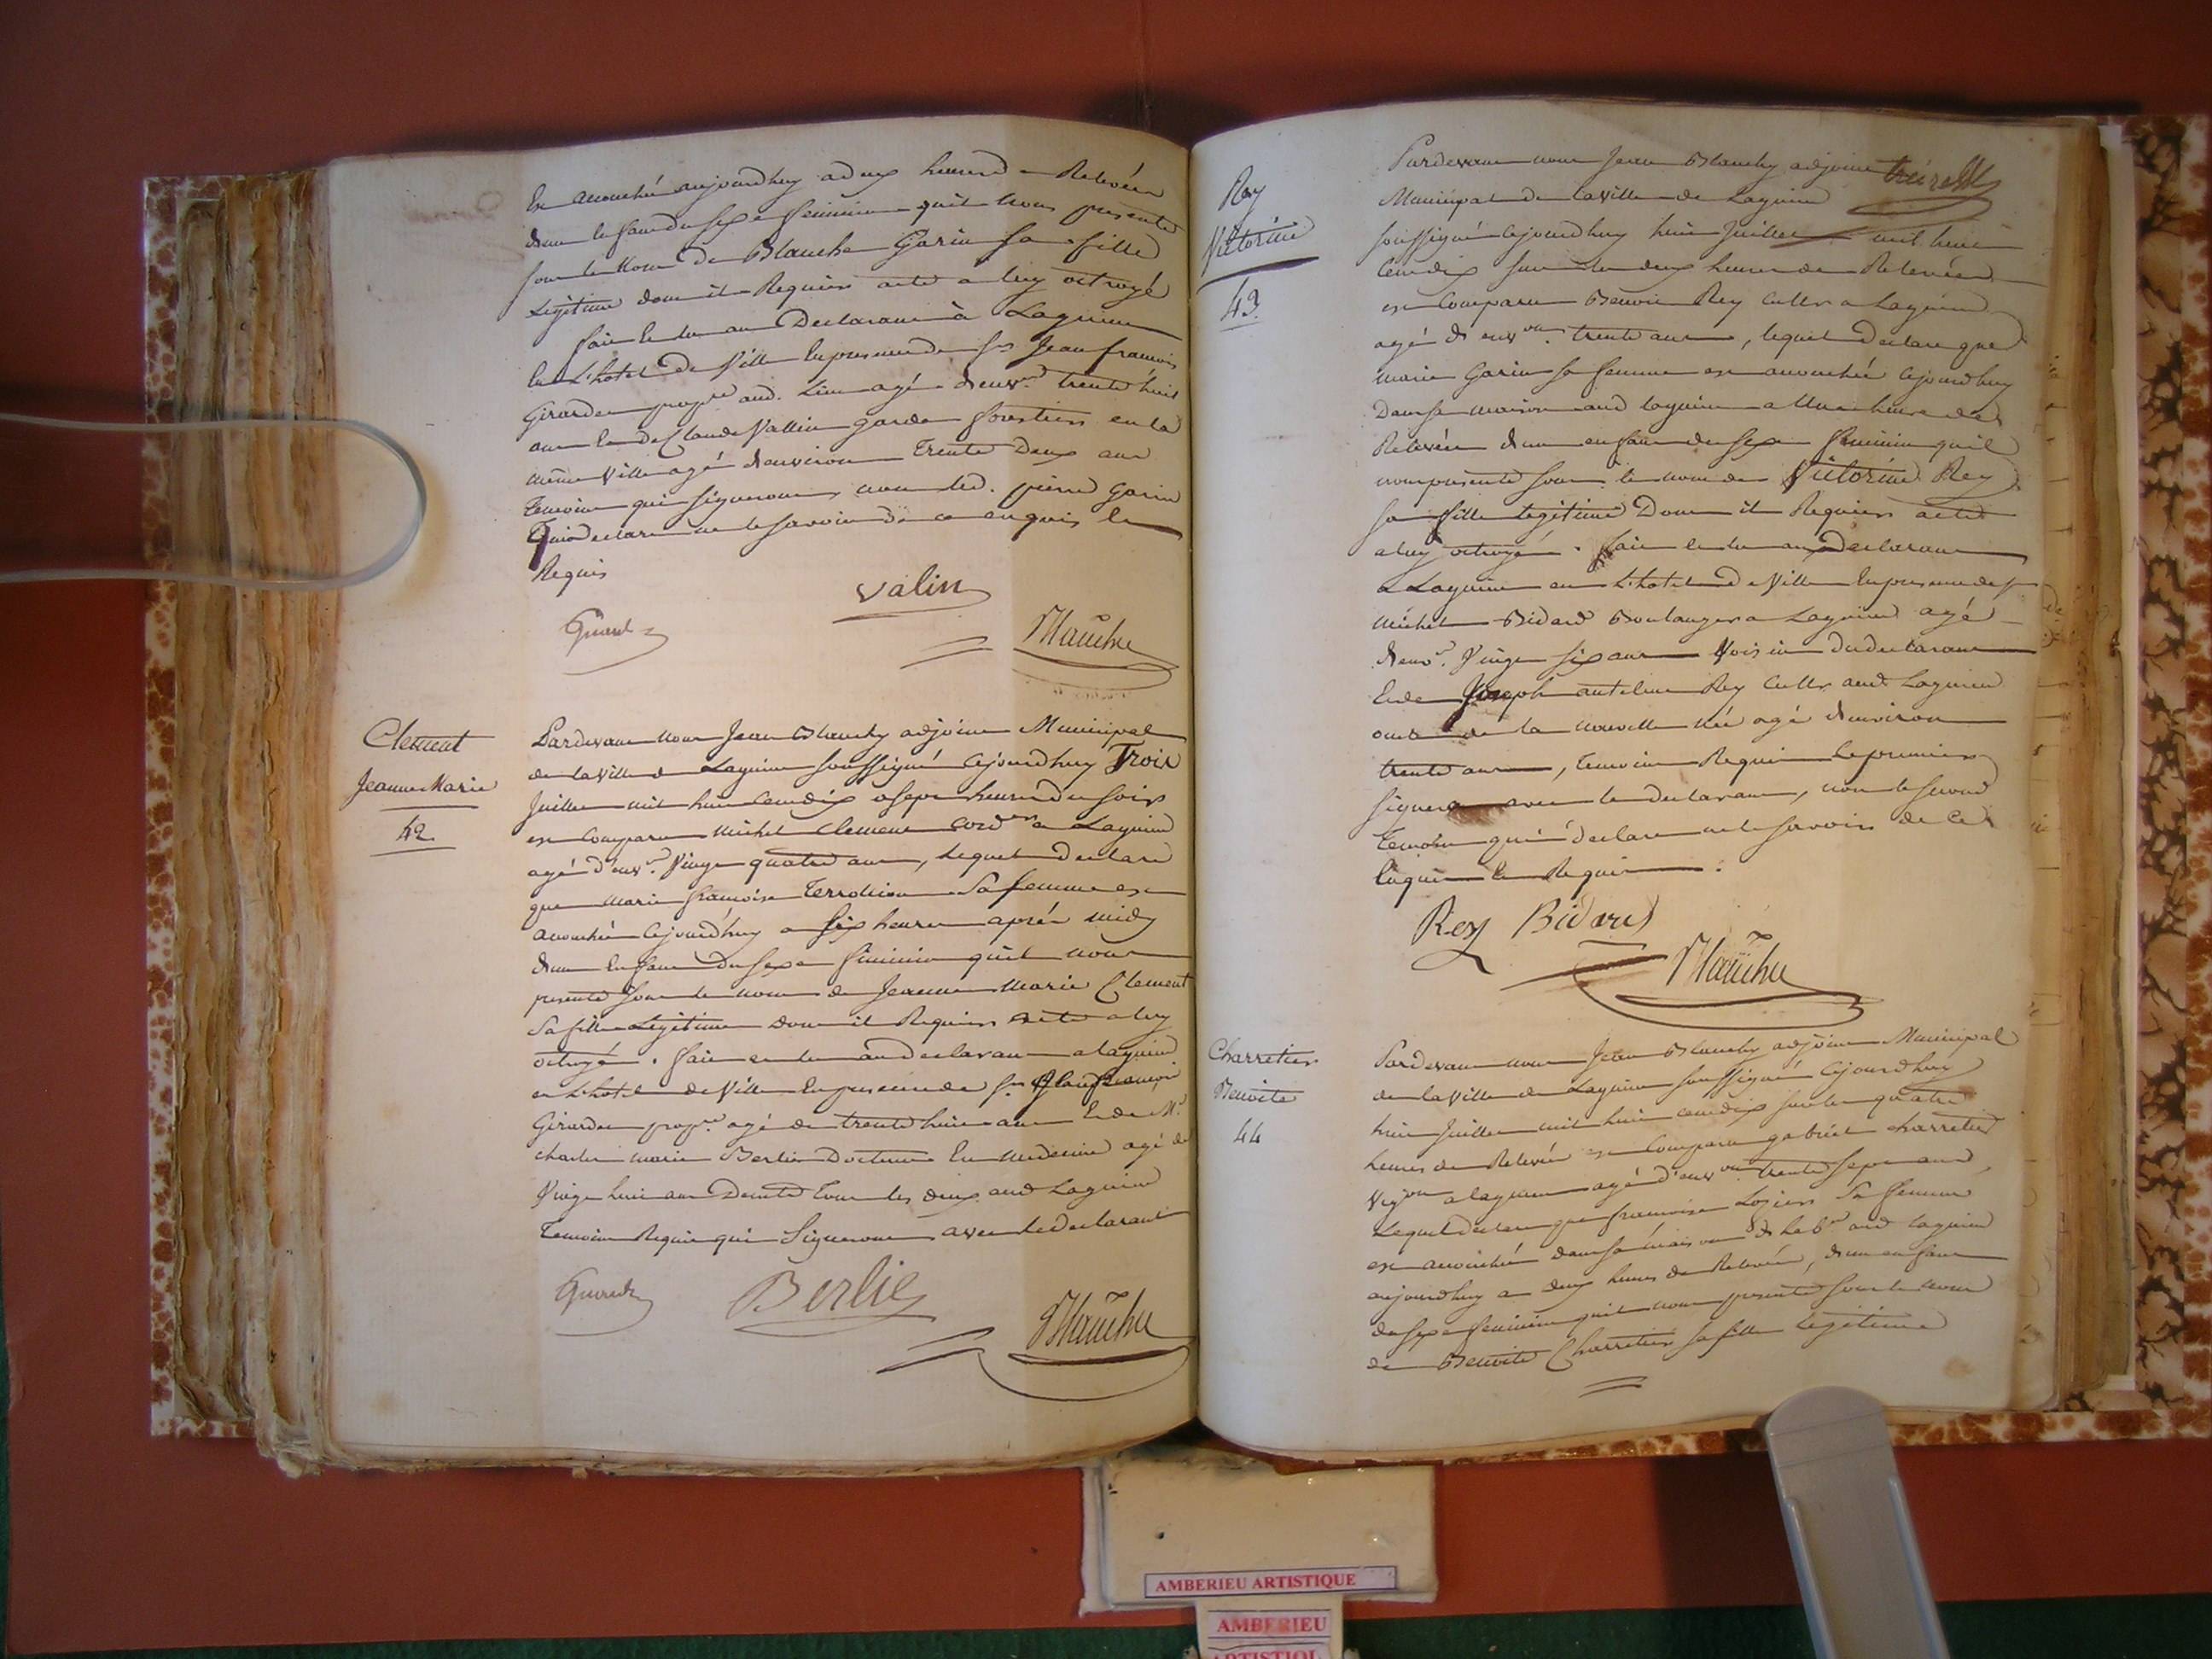 Est accouchée aujourdhuy a deux heures de Relevée
dun enfant du sexe feminin quil nous presente
sous le nom de Blanche Garin sa fille
Legitime dont il Requiers acte a luy octroyé
fait et lu au Declarant à Lagnieu
en L'hotel de Ville En presence de sr Jean francois
Girardet propre aud. Lieu agé d'envn trente huit
ans et de Claude Vallin garde forestier en la
même Ville agé d'environ Trente Deux ans
Temoins qui signeront non led. pierre Garin
Qui a declaré ne le savoir de ce enquis et
Requis
Valin
Girardet
Blanchy
Clement
Jeanne Marie
42
Pardevant nous Jean Blanchy adjoint Municipal
de la Ville de Lagnieu soussigné Cejourdhuy Trois
Juillet mil huit cent dix a sept heures du soir
est Comparu Michel Clement cordier a Lagnieu
agé d'envn Vingt quatre ans, Lequel declare
que Marie francoise sa femme est
accouchée Cejourd'huy a six heures aprés midy
dun Enfant du sexe feminin qu'il nous
presente sous le nom de Jeanne Marie Clement
sa fille Legitime dont il Requiers acte a luy
octroyé. fait et lu au declarant a Lagnieu
en L'hotel de Ville En presence de sr Jean francois
Girardet propre agé de trente huit ans Et de Mr
charles marie Berlie Docteur En medecine agé de
Vingt huit ans tous les deux aud Lagnieu
Temoins Requis qui Signeront avec le declarant
Girardet
Berlie
Blanchy
Rey
Victorine
43.
Pardevant nous Jean Blanchy adjoint
Municipal de la Ville de Lagnieu
soussigné Cejourdhuy huit Juillet mil huit
Cent dix sur les deux heures de Relevée
est Comparu Benoit Rey Cultr a Lagnieu
agé d'environ trente ans, lequel Declare que
Marie Garin sa femme est accouchée Cejourdhuy
Dans sa maison aud Lagnieu a Une heure de
Relevée dun enfant du sexe feminin quil
nous presente sous le nom de Victorine Rey
sa fille Legitime Dont il Requiers acte
a luy octroyé. fait et lu au Declarant
a Lagnieu en L'hotel de Ville En presence de sr
Michel Bidard Boulanger a Lagnieu agé
d'envn Vingt six ans Voisin du declarant
Et de Joseph antelme Rey Cultr aud Lagnieu
oncle de la nouvelle née agé d'environ
trente ans, temoins Requis Le premier
signera avec le declarant, non le second
Temoin qui a déclaré ne le savoir de Ce
Enquis et Requis.
Rey Bidard
Blanchy
Charretier
Benoite
44
Pardevant nous Jean Blanchy adjoint Municipal
de la Ville de Lagnieu soussigné Cejourdhuy
huit Juillet mil huit cent dix sur les quatre
heures de Relevée est Comparu gabriel charretier
Vigon a Lagnieu agé d'environ trente sept ans,
Lequel declare que francoise Lozier sa femme
est accouchée dans sa maison aud Lagnieu
aujourdhuy a deux heures de Relevée, dun enfant
du sexe feminin quil nous presente sous le nom
de Benoite Charretier sa fille Legitime
AMBERIEU ARTISTIQUE
AMBERIEU
ARTISTIQUE